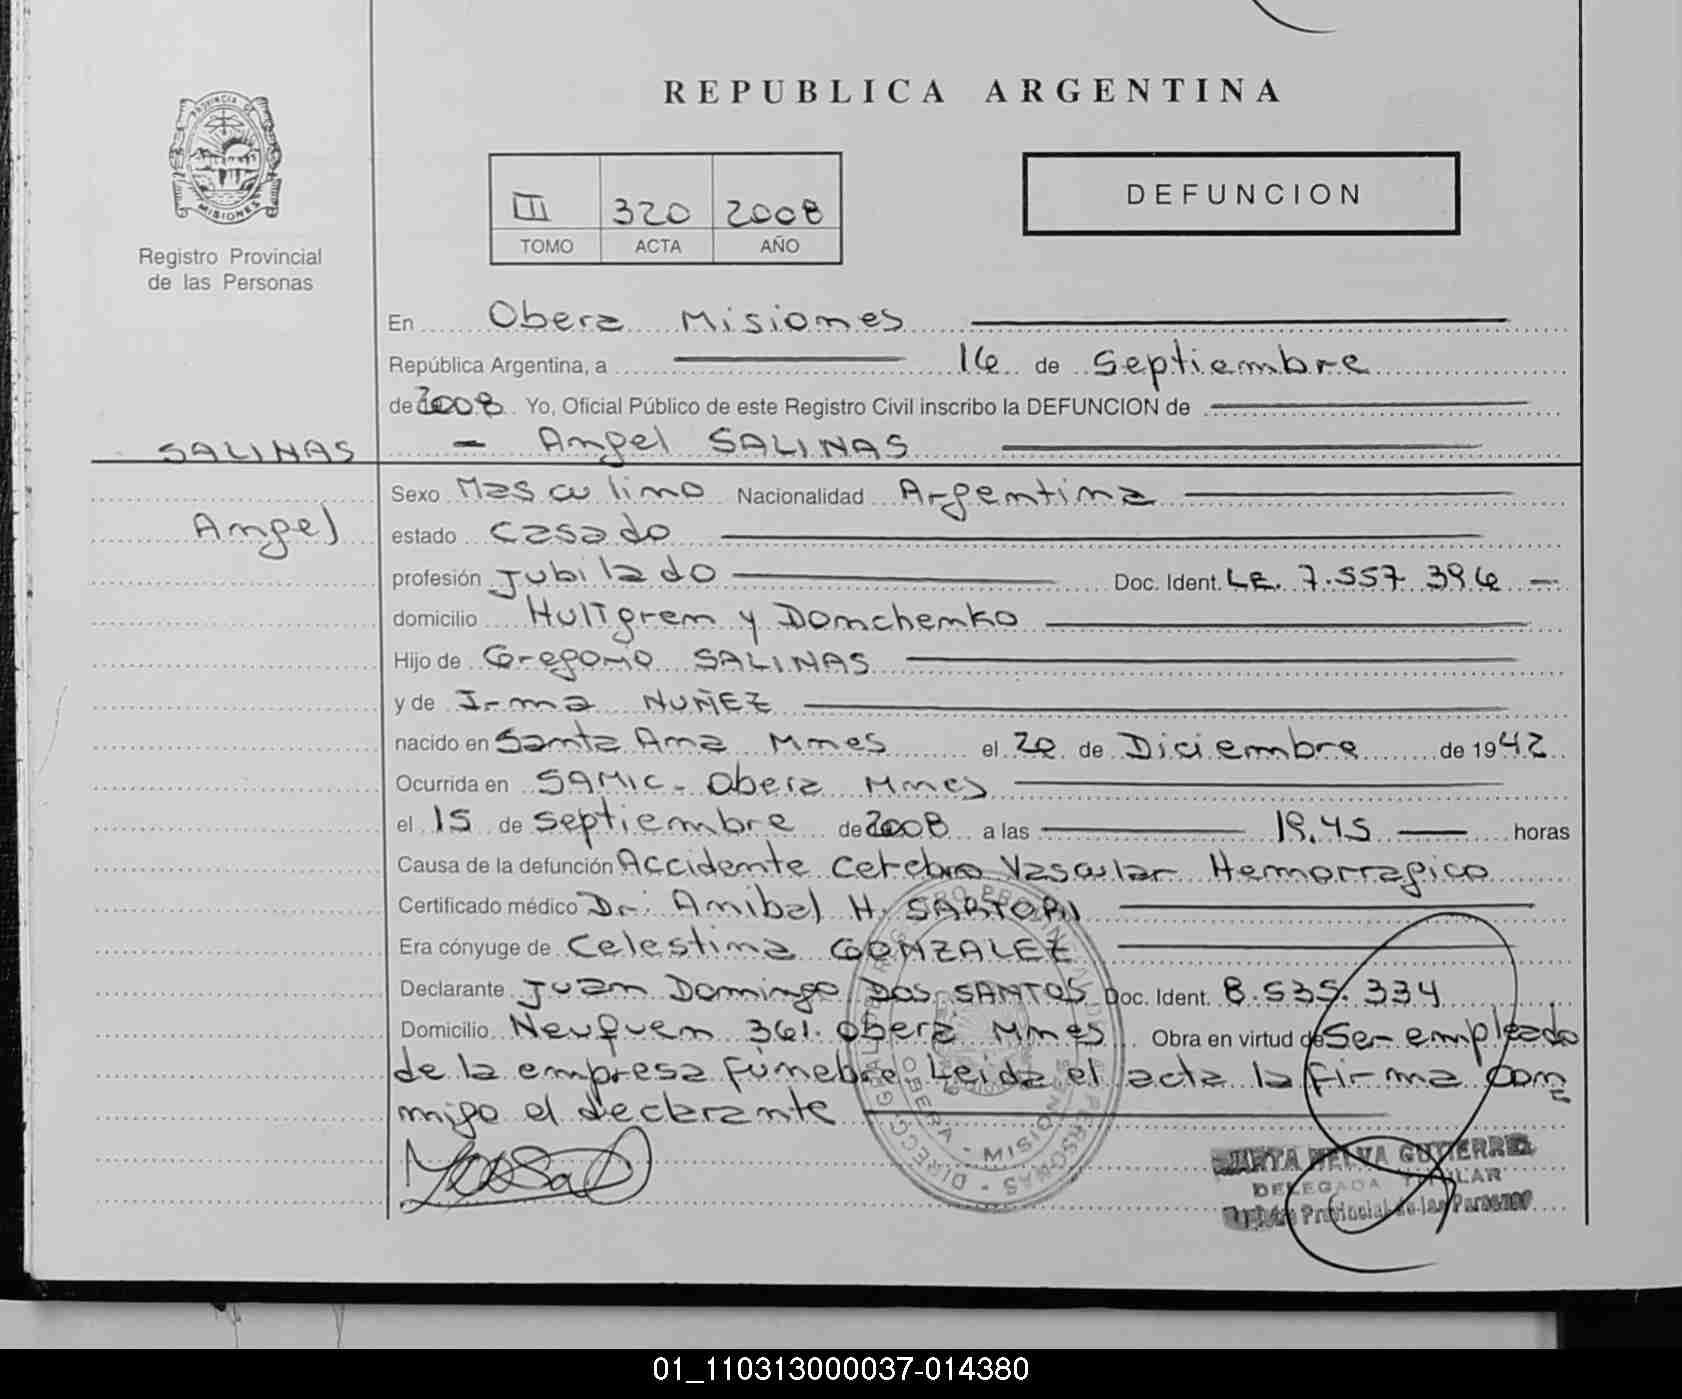 REPUBLICA ARGENTINA
PROVINCIA DE
MISIONES
Registro Provincial
de las Personas
III 320 2008
TOMO ACTA AÑO
DEFUNCION
En Obera Misiones
República Argentina, a 16 de Septiembre
de 2008 Yo, Oficial Público de este Registro Civil inscribo la DEFUNCION de
- Angel SALINAS
SALINAS
Angel
Sexo Masculino Nacionalidad Argentina
estado Casado
profesión Jubilado Doc. Ident. L.E. 7.557.396
domicilio Hultgren y Domchenko
Hijo de Gregorio SALINAS
y de Irma NUÑEZ
nacido en Santa Ana Mnes el 20 de Diciembre de 1942
Ocurrida en SAMIC - Obera Mnes
el 15 de septiembre de 2008 a las 19.45 horas
Causa de la defunción Accidente Cerebro Vascular Hemorragico
Certificado médico Dr. Anibal H. SARTORI
Era cónyuge de Celestina GONZALEZ
Declarante Juan Domingo DOS SANTOS Doc. Ident. 8.535.334
Domicilio Neuquen 361. Obera Mnes Obra en virtud de Ser empleado
de la empresa fúnebre. Leida el acta la firma con
migo el declarante
OBERA - MISIONES
MARTA NELVA GUTIERREZ
DELEGADA TITULAR
Registro Provincial de las Personas
01_110313000037-014380